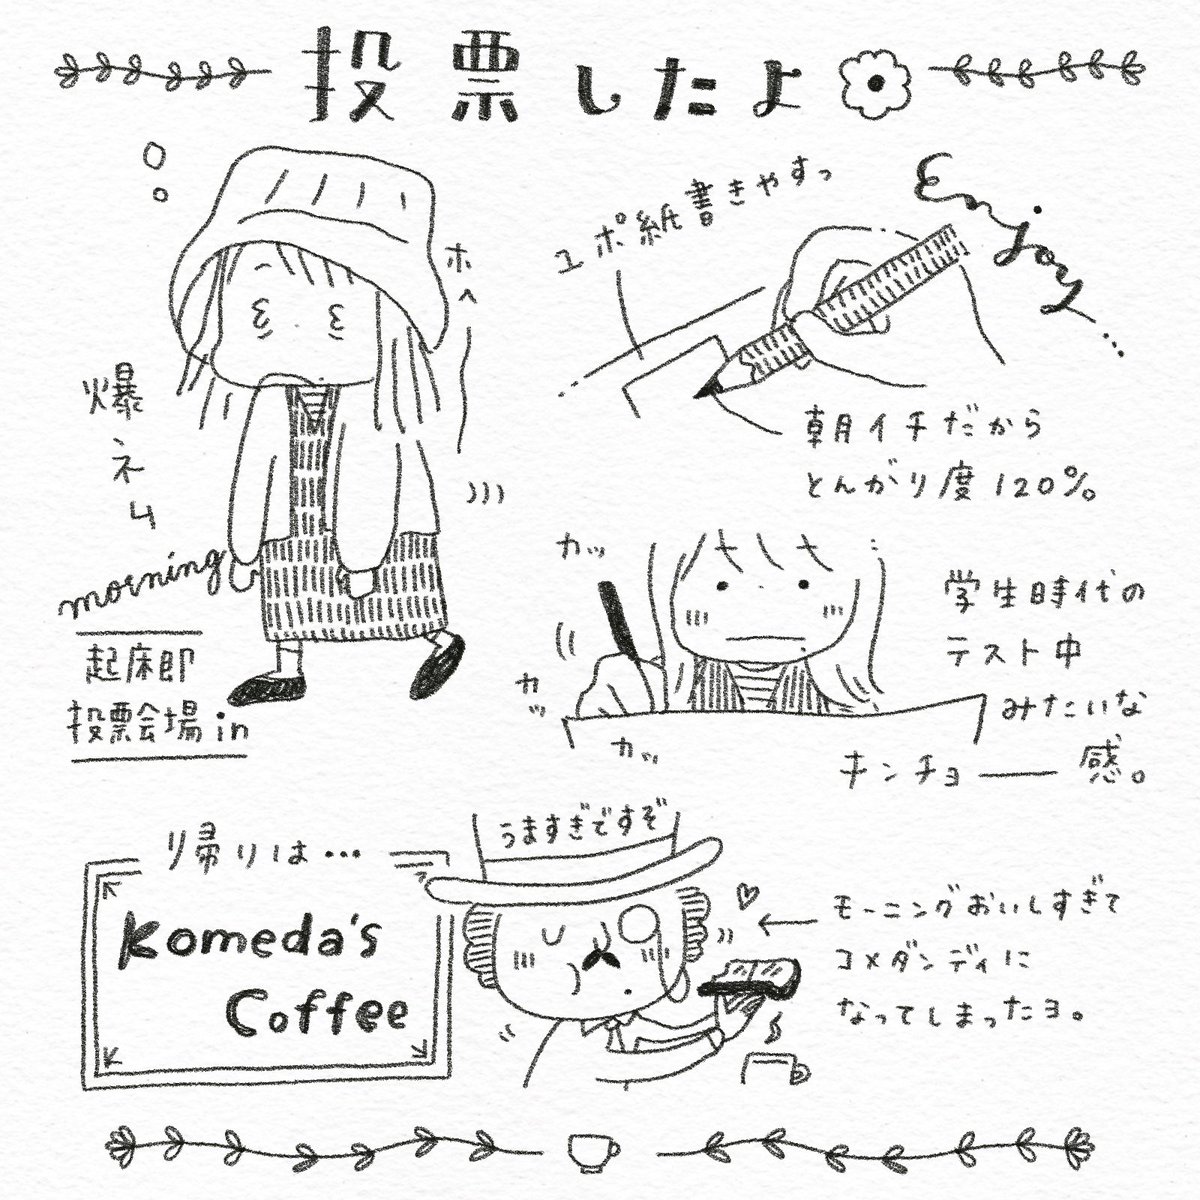 投票したよ
ホヘ
爆ネム
morning
起床即
投票会場in
ユポ紙書きやすっ
Enjoy...
朝イチだから
とんがり度120%
カッ
カッ
カッ
学生時代の
テスト中
みたいな
キンチョー感。
帰りは…
Komeda's
Coffee
うますぎですぞ
モーニングおいしすぎて
コメダンディに
なってしまったヨ。